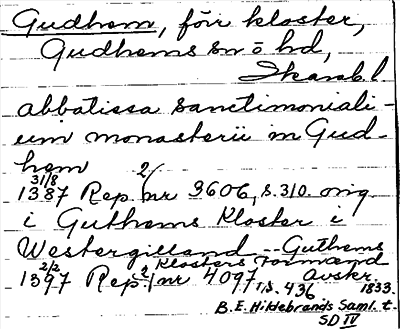 Gudhem, förr kloster,
Gudhems sn o hd,
Skarab l
abbatissa sanctimoniali-
um monasterii in Gud-
hem
31/8 1387 Rep. 2/ nr 3606, s. 310. orig.
i Guthems Kloster i
Westergilland -- Guthems
Klosters Formænd
2/2 1397 Rep. 2/ nr 4097, s. 436 Avskr. 1833.
B. E. Hildebrands Saml. t.
SD IV